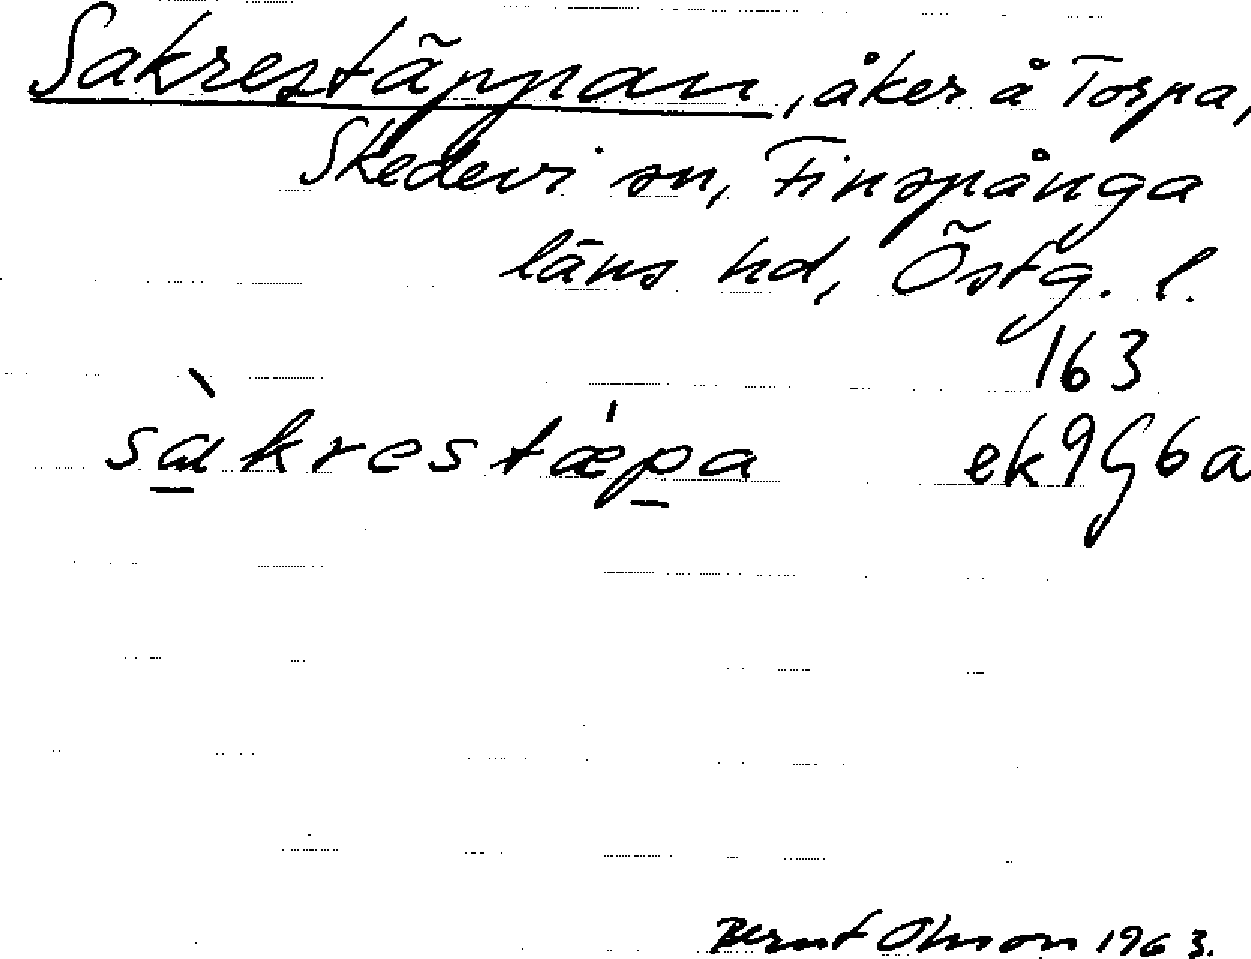 Sakrestäppan, åker å Torpa,
Skedevi sn, Finspånga
läns hd, Östg. l.
163
sàkrestæ̍pa ek9G6a
Bernt Olsson 1963.